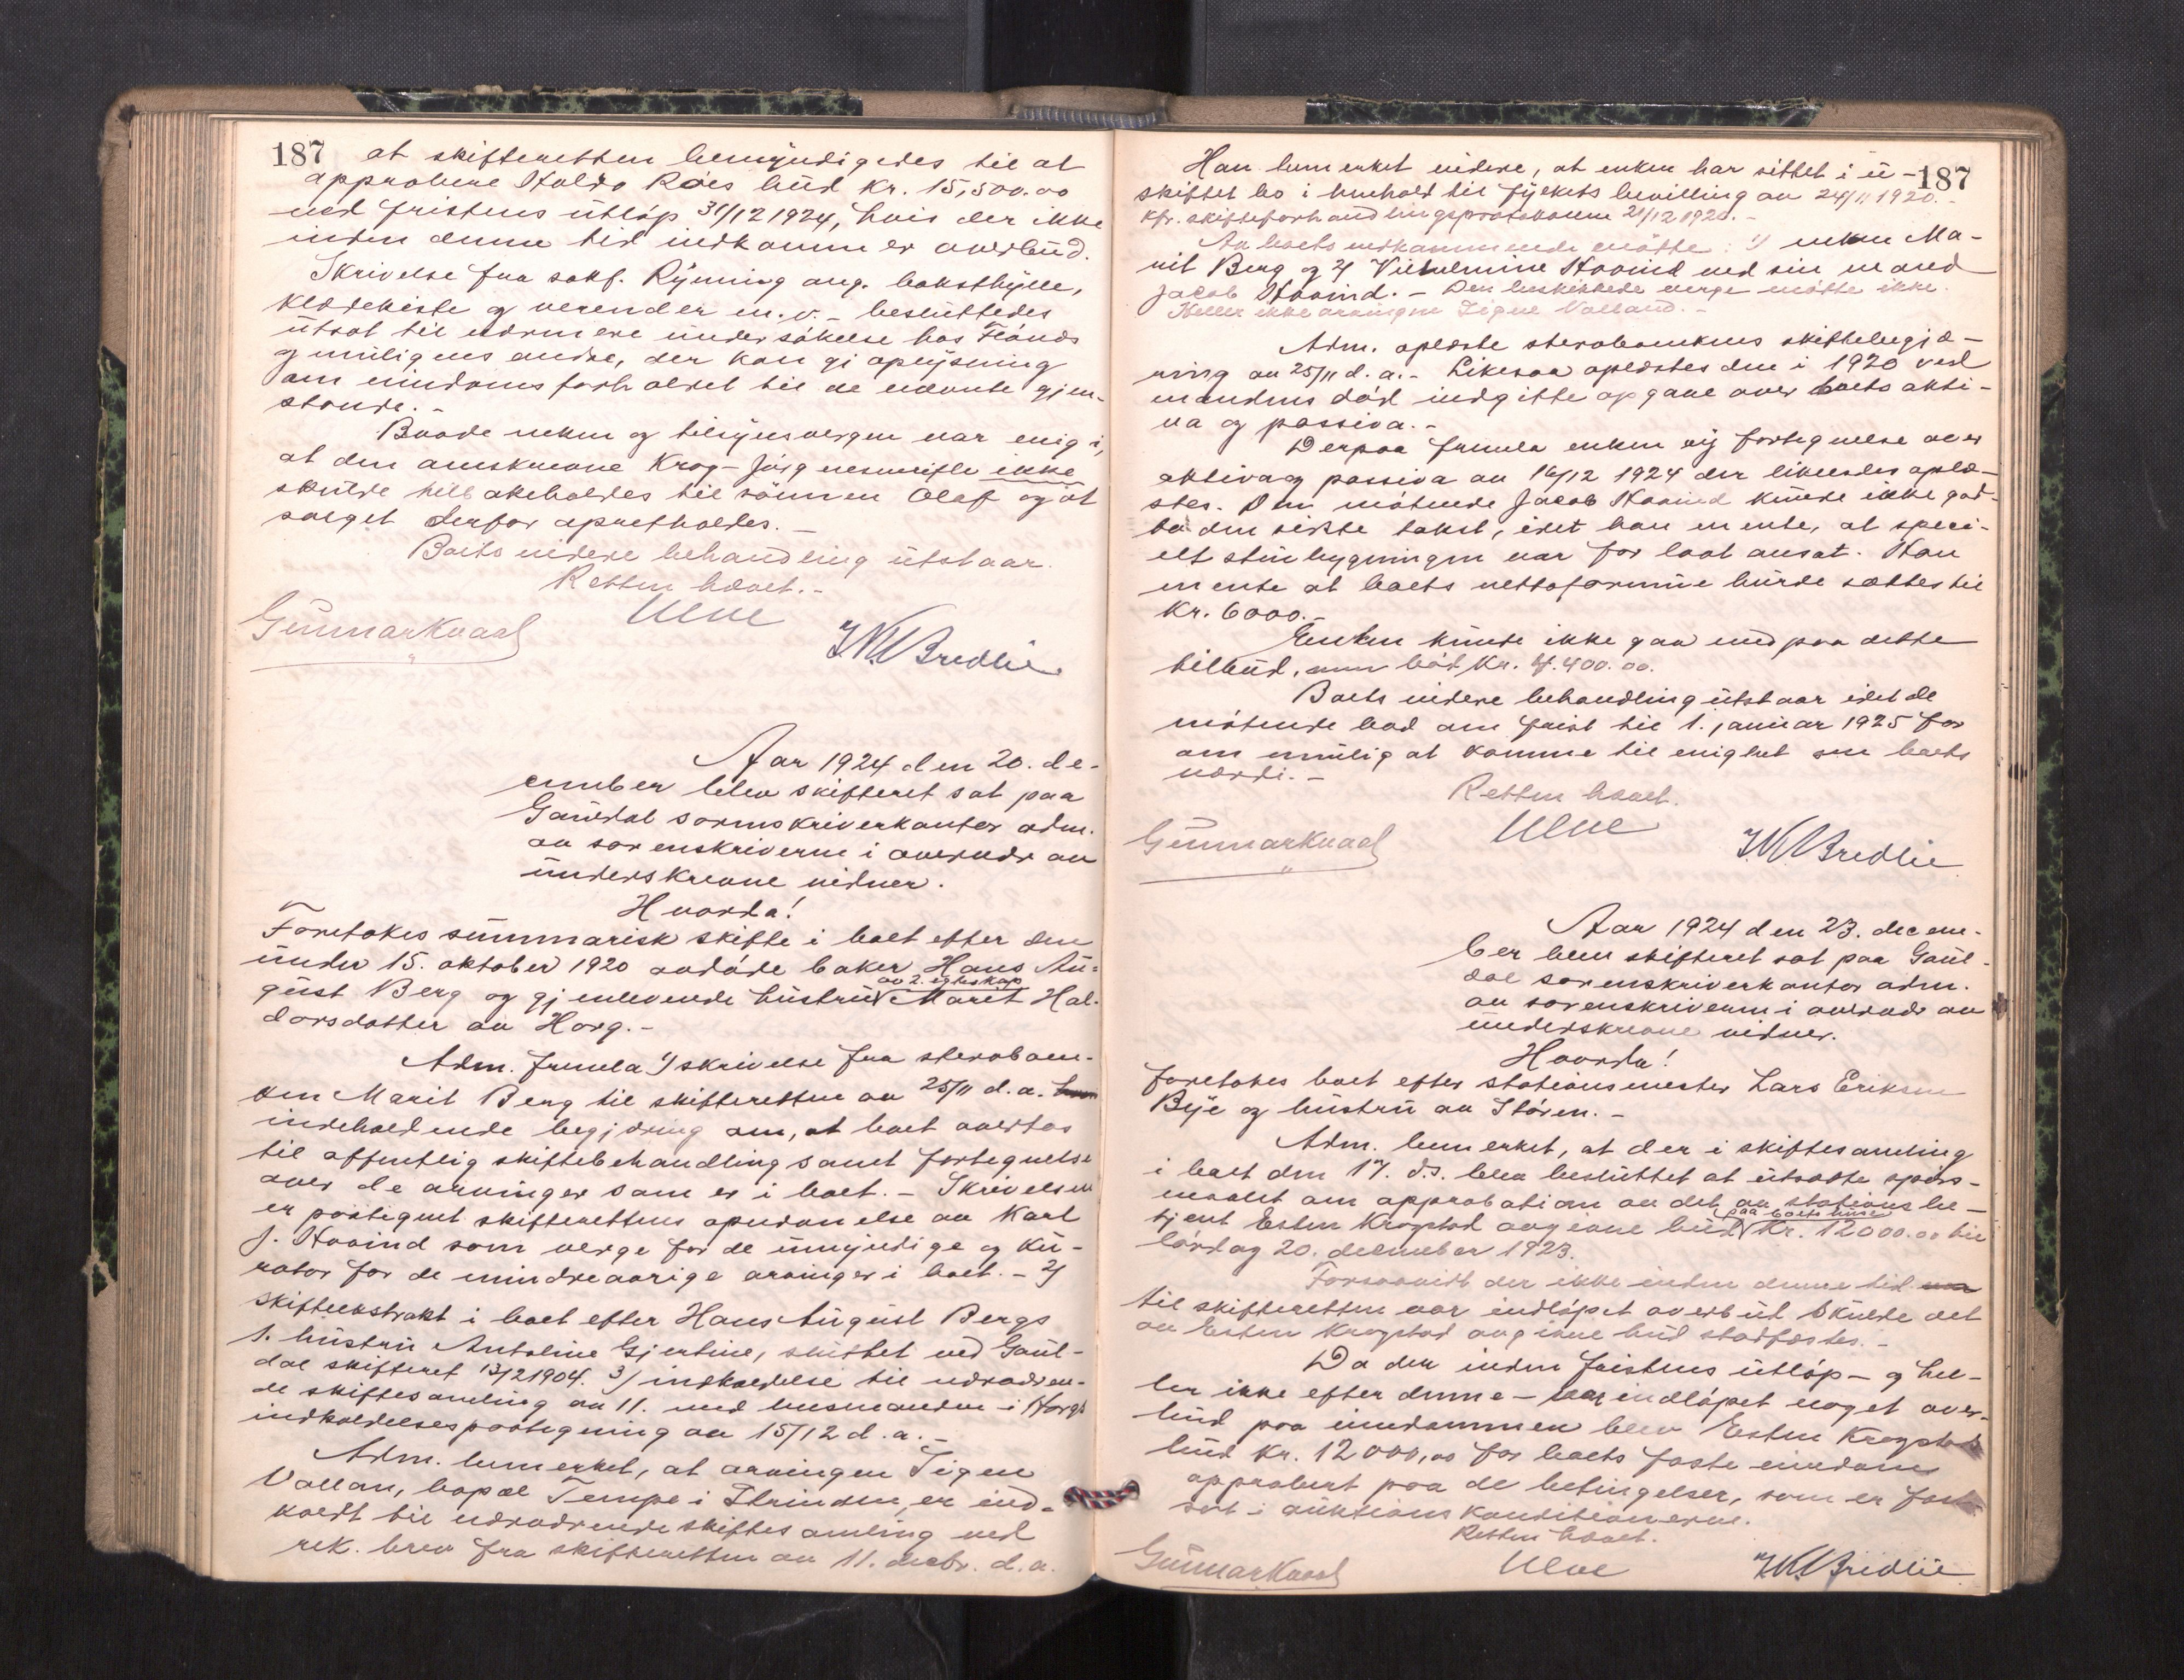 187
at skifteretten bemyndigedes til at
approbere Haldo Róes bud kr. 15,500.00
ved fristens utløp 31/12 1924, hvis der ikke
inden denne tid indkommer overbud.
Skrivelse fra sakf. Rynning ang. boksthylle,
klædekiste og verender m.v. - besluttedes
utsat til nærmere undersøkelse hos
og muligens andre, der kan gi oplysning
om eiendomsforholdet til de nævnte gjen-
stande. -
Baade enken og tilsynsvergen var enig i,
at den omskrevne Krag-Jørgensenrifle ikke
skulde tilbakeholdes til sønnen Olaf og at
salget derfor opretholdes. -
Boets videre behandling utstaar.
Retten hævet. -
Gunnar Kvaal Ulve I.K. Bredlie
Aar 1924 den 20. de-
cember blev skifteret sat paa
Gauldal sorenskriverkontor adm.
av sorenskriveren i overvær av
underskrevne vidner.
Hvorda!
Foretokes summarisk skifte i boet efter den
under 15. oktober 1920 avdøde baker Hans Au-
gust Berg og gjenlevende hustru av 2. egteskap Marit Hal-
dorsdatter av Horg. -
Adm. fremla 1) skrivelse fra sterboen-
ken Marit Berg til skifteretten av 25/11 d.a.
indeholdende begjæring om, at boet overtas
til offentlig skiftebehandling samt fortegnelse
over de arvinger som er i boet. - Skrivelsen
er paategnet skifterettens opnævnelse av Karl
J. Hovind som verge for de umyndige og ku-
rator for de mindreaarige arvinger i boet. - 2)
skifteekstrakt i boet efter Hans August Bergs
1. hustru Antoline Gjertine, sluttet ved Gaul-
dal skifteret 13/2 1904. 3) indkaldelse til nærværen-
de skiftesamling av 11. med lensmanden i Horgs
indkaldelsespaategning av 15/12 d.a. -
Adm. bemerket, at arvingen Signe
Vollan, bopæl Tempe i Strinden, er ind-
kaldt til nærværende skiftesamling ved
rek. brev fra skifteretten av 11. decbr. d.a.
187
Han bemerket videre, at enken har sittet i u-
skiftet bo i henhold til fylkets bevilling av 24/11 1920. -
kfr. skifteforhandlingsprotokollen 21/12 1920. -
Av boets vedkommende møtte: 1) enken Ma-
rit Berg og 2) Vilhelmine Hovind ved sin mand
Jacob Hovind. - Den beskikkede verge møtte ikke.
Heller ikke arvingen Signe Volland. -
Adm. oplæste sterboenkens skiftebegjæ-
ring av 25/11 d.a. - Likesaa oplæstes den i 1920 ved
mandens død indgitte opgave over boets akti-
va og passiva. -
Derpaa fremla enken ny fortegnelse over
aktiva og passiva av 16/12 1924 der likeledes oplæ-
stes. Den møtende Jacob Hovind kunde ikke god-
ta den sidste takst, idet han mente, at speci-
elt stenbygningen var for lavt ansat. Han
mente at boets nettoformue burde sættes til
Kr. 6000. -
Enken kunde ikke gaa med paa dette
tilbud, men bød kr. 4.400.00.
Boets videre behandling utstaar idet de
møtende bad om frist til 1. januar 1925 for
om mulig at komme til enighet om boets
værdi. -
Retten hævet.
Gunnar Kvaal Ulve I.K. Bredlie
Aar 1924 den 23. decem-
ber blev skifteret sat paa Gaul-
dal sorenskriverkontor adm.
av sorenskriveren i overvær av
underskrevne vidner.
Hvorda!
Foretokes boet efter stationsmester Lars Eriksen
Bye og hustru av Støren. -
Adm. bemerket, at der i skiftesamling
i boet den 17. ds. blev besluttet at utsætte spørs-
maalet om approbation av det av stationsbe-
tjent Esten Krogstad avgivne bud paa boets huse Kr. 12000.00 til
lørdag 20. december 1923.
Forsaavidt der ikke inden denne tid
til skifteretten var indløpet overbud skulde det
av Esten Krogstad avgivne bud stadfæstes. -
Da der inden fristens utløp - og hel-
ler ikke efter denne - var indløpet noget over-
bud paa eiendommen blev Esten Krogstads
bud kr. 12000,00 for boets faste eiendom
approbert paa de betingelser, som er
i auktionskonditionerne.
Retten hævet.
Gunnar Kvaal Ulve I.K. Bredlie